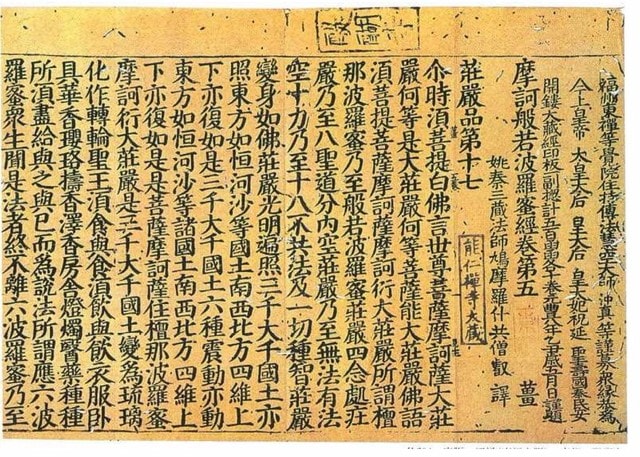 福州東禪等覺院住持傳法慧空大師 沖真等謹募衆緣恭為
今上皇帝 太皇太后 皇太后 皇太妃祝延 聖壽國泰民安
開鏤大藏經印板一副總計五百 元豐八年乙丑歲五月日謹題
摩訶般若波羅蜜經卷第五 薑
姚秦三藏法師鳩摩羅什共僧叡 譯
莊嚴品第十七
能仁禪寺大藏
尒時湏菩提白佛言世尊菩薩摩訶薩大莊
嚴何等是大莊嚴何等菩薩能大莊嚴佛語
湏菩提菩薩摩訶薩摩訶衍大莊嚴所謂檀
那波羅蜜乃至般若波羅蜜莊嚴四念處莊
嚴乃至八聖道分内空莊嚴乃至無法有法
空十力乃至十八不共法及一切種智莊嚴
變身如佛莊嚴光明遍照三千大千國土亦
照東方如恒河沙等國土南西北方四維上
下亦復如是三千大千國土六種震動亦動
東方如恒河沙等諸國土南西北方四維上
下亦復如是是菩薩摩訶薩住檀那波羅蜜
摩訶衍大莊嚴是三千大千國土變為琉璃
化作轉輪聖王湏食與食湏飲與飲衣服卧
具華香瓔珞擣香澤香房舍燈燭醫藥種種
所湏盡給與之與已而為說法所謂應六波
羅蜜衆生聞是法者終不離六波羅蜜乃至